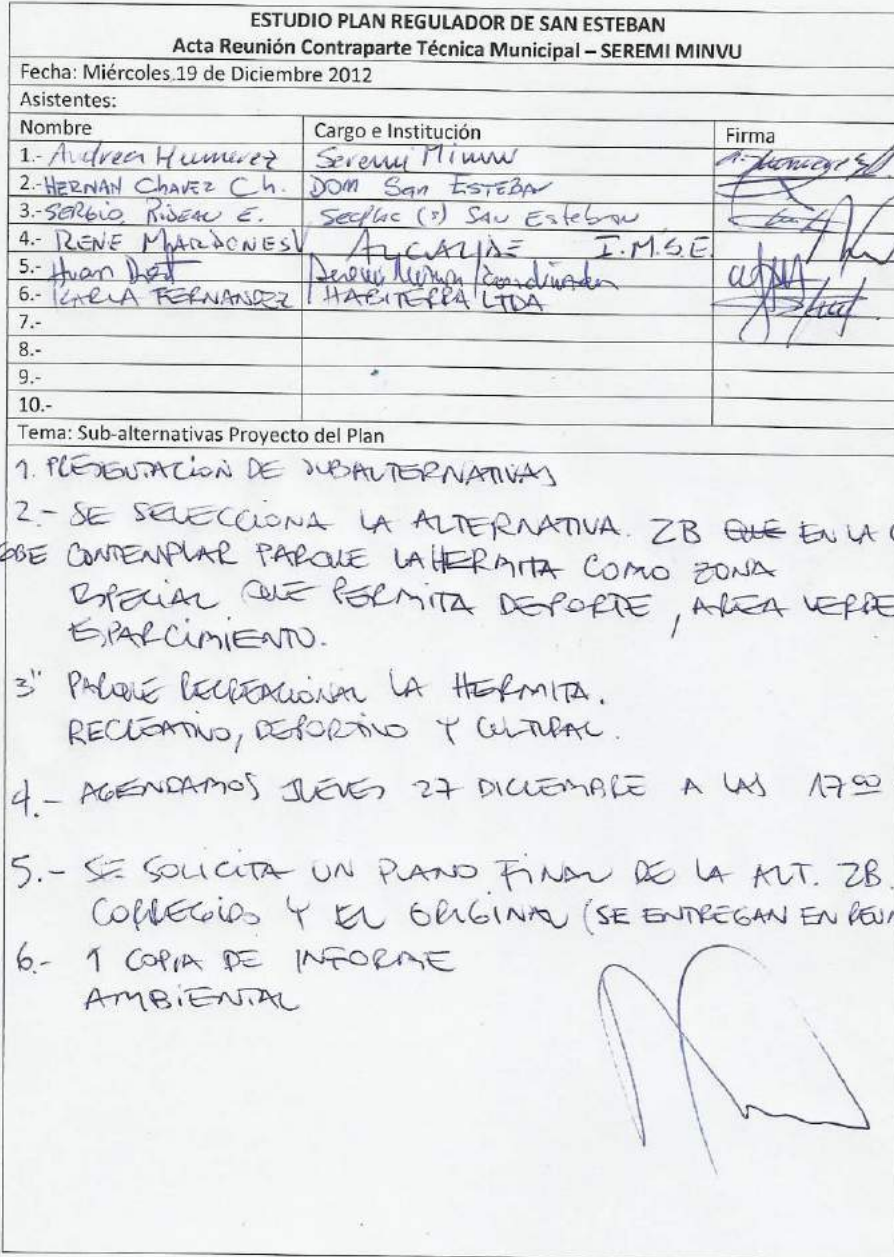 ESTUDIO PLAN REGULADOR DE SAN ESTEBAN
Acta Reunión Contraparte Técnica Municipal – SEREMI MINVU
Fecha: Miércoles 19 de Diciembre 2012
Asistentes:
Nombre Cargo e Institución Firma
1.- Andrea Seremi Minvu
2.- HERNAN CHAVEZ Ch. DOM San ESTEBAN
3.- SERGIO E. Secplac (s) SAN Esteban
4.- RENE MARDONES V ALCALDE I.M.S.E.
5.- Seremi
6.- KARLA FERNANDEZ HABITERRA LTDA
7.-
8.-
9.-
10.-
Tema: Sub-alternativas Proyecto del Plan
1. PRESENTACION DE SUBALTERNATIVAS
2.- SE SELECCIONA LA ALTERNATIVA. 2B QUE EN LA
DEBE CONTEMPLAR PARQUE LA HERMITA COMO ZONA
ESPECIAL QUE PERMITA DEPORTE, AREA VERDE
ESPARCIMIENTO.
3" PARQUE RECREACIONAL LA HERMITA.
RECREATIVO, DEPORTIVO Y CULTURAL.
4.- AGENDAMOS JUEVES 27 DICIEMBRE A LAS 17 00
5.- SE SOLICITA UN PLANO FINAL DE LA ALT. 2B.
CORREGIDO Y EL ORIGINAL (SE ENTREGAN EN REUN
6.- 1 COPIA DE INFORME
AMBIENTAL